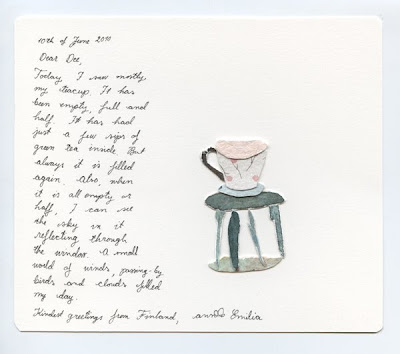 10th of June 2010
Dear Dee,
Today I saw mostly
my teacup. It has
been empty, full and
half. It has had
just a few sips of
green tea inside. But
always it is filled
again. Also, when
it is all empty or
half, I can see
the sky in it
reflecting through
the window. A small
world of winds, passing-by
birds and clouds filled
my day.
Kindest greetings from Finland, Emilia